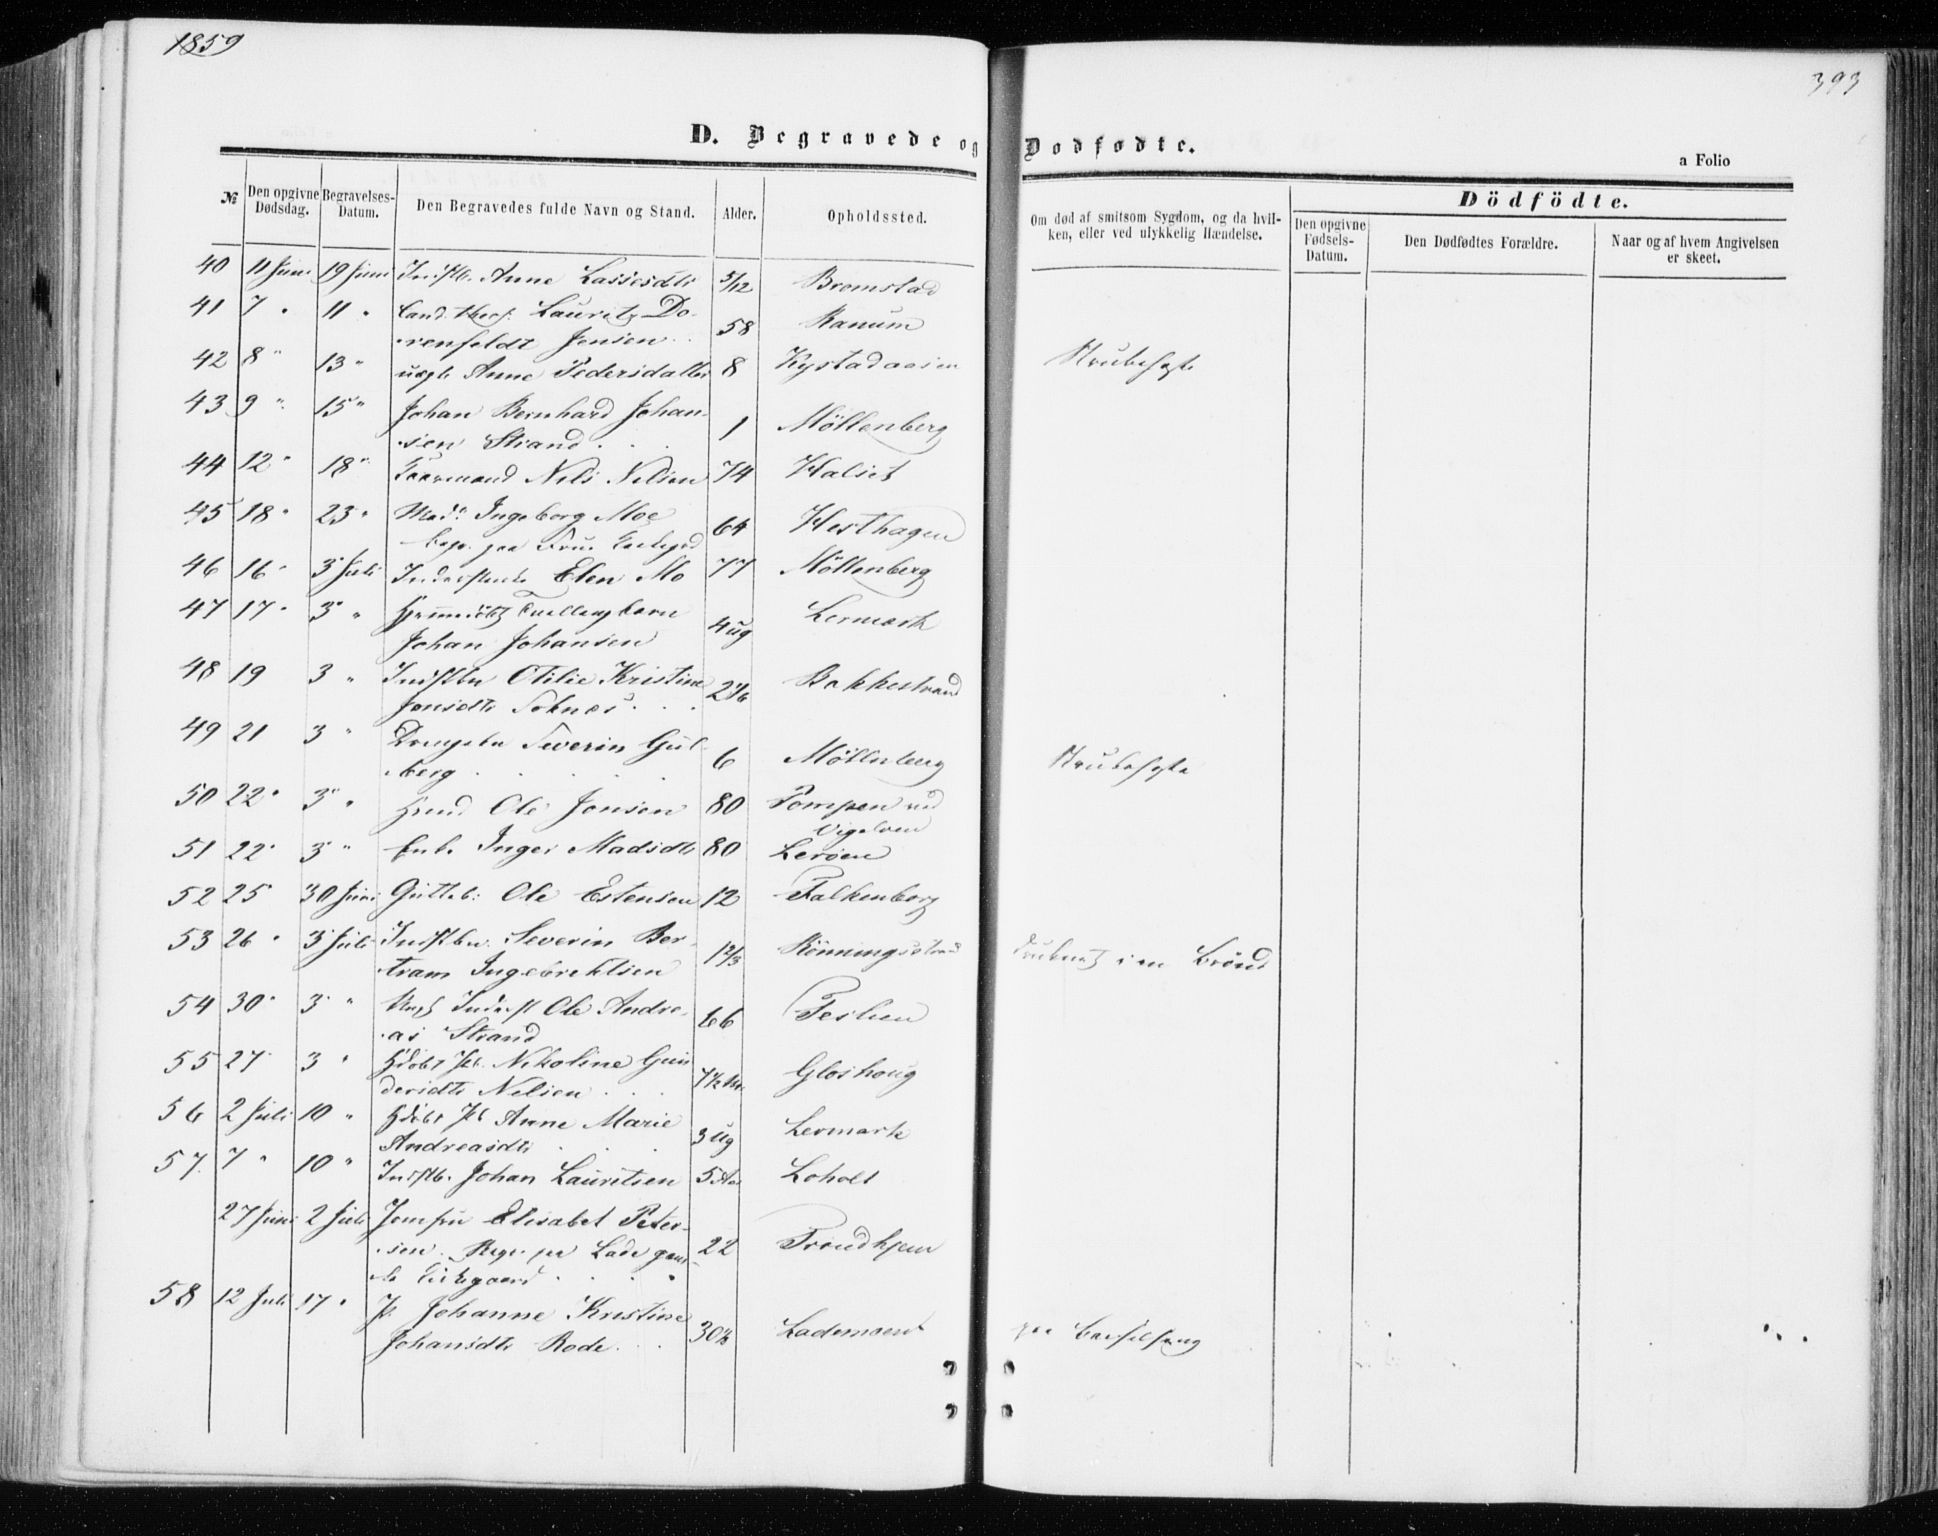 1859
393
D. Begravede og Dodfødte.
a Folio
№ Den opgivne Dødsdag. Begravelses-Datum. Den Begravedes fulde Navn og Stand. Alder. Opholdssted. Om død af smitsom Sygdom, og da hvilken, eller ved ulykkelig Hændelse.
Dödfödte.
Den opgivne Fødsels-Datum. Den Dødfødtes Forældre. Naar og af hvem Angivelsen er skeet.
40 11 Juni 19 Juni Indstb. Anne Lassesdtr 5/12 Bromstad
41 7 " 11 " Cand. theol. Lauritz Do-
renfeldt Jensen 58 Ranum
42 8 " 13 " uægte Anne Pedersdatter 8 Kystadaasen Strubehoste
43 9 " 15 " Johan Bernhard Johan-
sen Strand 1 Möllenberg
44 12 " 18 " Kaarmand Nils Nilsen 74 Halset
45 18 " 23 " Mad. Ingeborg Moe
begr. paa Frue Kirkegrd 64 Hesthagen
46 16 " 3 Juli Inderstenke Elen Mo 77 Möllenberg
47 17 " 3 " Hjemmedöbt Tvillingbarn
Johan Johansen 4 Ug Lermark
48 19 3 " Indstbn Otilie Kristine
Jonsdtr Soknes 2 1/6 Bakkestrand
49 21 3 " Severin Gul-
berg 6 Möllenberg Strubehoste
50 22 " 3 " Hmd Ole Jonsen 80 Pompen ved
Vigelven
51 22 " 3 " Enk. Inger Madsdtr 80 Leröen
52 25 30 Juni Gutteb: Ole Estensen 12 Falkenborg
53 26 " 3 Juli Indstbn. Severin Ber-
tram Ingebrektsen 1 2/3 Rönningsstrand druknet i en Brönd
54 30 " 3 " Ungk Inderst Ole Andre-
as Strand 66 Feslien
55 27 3 " Hdöbt Pb. Nikoline Gun-
dersdtr Nilsen 7 1/2 Gloshoug
56 2 Juli 10 " Hdöbt Pb Anne Marie
Andreasdtr 3 Ug Lermark
57. 7 " 10 " Indstb. Johan Lauritsen 5 Aar Loholt
27 Juni 2 Juli Jomfru Elisabet Peter-
sen. Begr. paa Lade gam-
le Kirkegaard 22 Trondhjem
58 12 Juli 17 " P. Johanne Kristine
Johansdtr Rode 30 1/2 Lademoen paa Barselseng